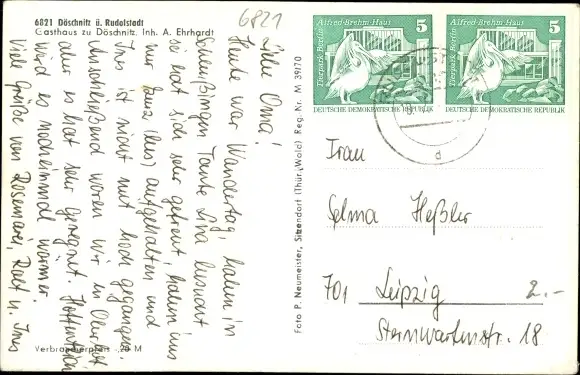 6821 Döschnitz ü. Rudolstadt
Gasthaus zu Döschnitz, Inh. A. Ehrhardt
6821
Liebe Oma!
Heute war Wandertag, haben in
Tante Lisa besucht
sie hat sich sehr gefreut, haben uns
nur kurz (bus) aufgehalten und
Ines ist nicht mit hoch gegangen.
Anschließend waren wir in
aber es hat sehr geregnet. Hoffentlich
wird es nocheinmal wärmer.
Viele Grüße von Rosemarie, Ralf u. Ines
Verbraucherpreis -,20 M
Foto P. Neumeister, Sitzendorf (Thür. Wald) Reg. Nr. M 39/70
Alfred-Brehm-Haus 5
Tierpark Berlin
DEUTSCHE DEMOKRATISCHE REPUBLIK
Alfred-Brehm-Haus 5
Tierpark Berlin
DEUTSCHE DEMOKRATISCHE REPUBLIK
d
Frau
Selma Heßler
701 Leipzig
2.-
Sternwartenstr. 18